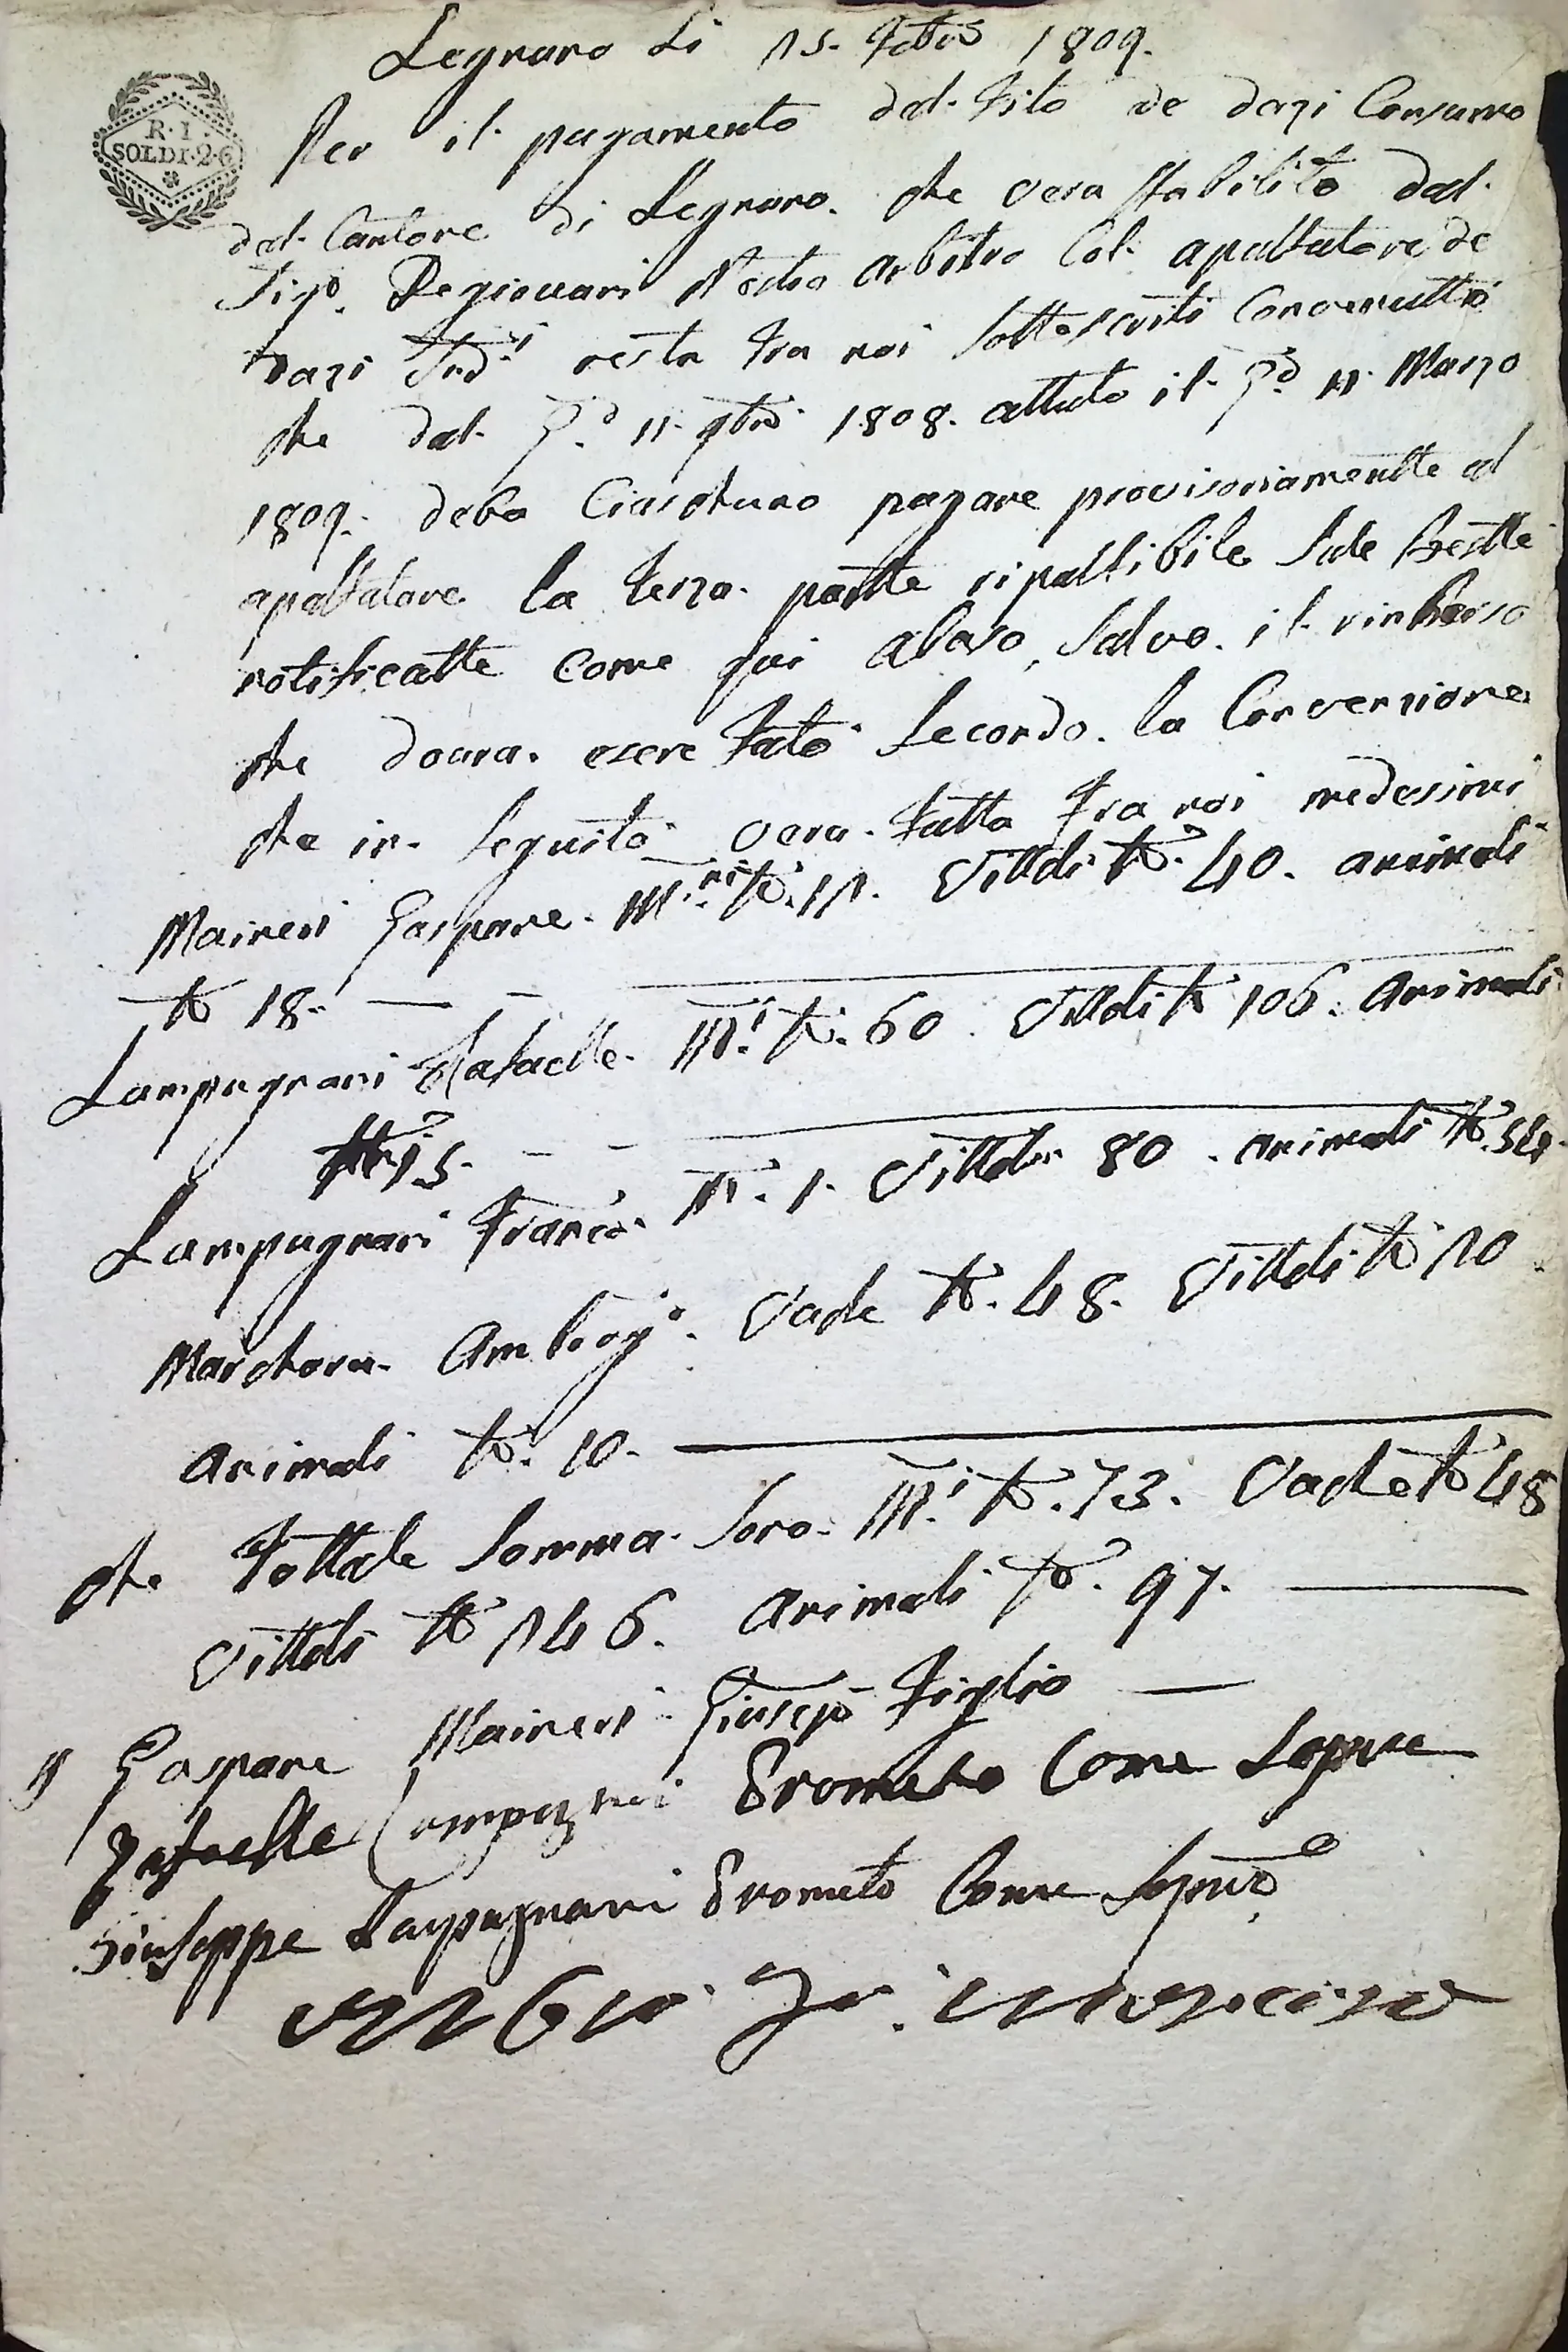 Legnano Li 15. Febro 1809.
R. I.
SOLDI. 2. 6
Per il pagamento del. Fito de dazi Consumo
del. Cantone di Legnano. che vera stabilito dal.
Sigr. Degiouani Nostro arbitro Col. apaltatore de
Dazi Sud.i resta tra noi sottoscritti Convenutto
che dal. G.o 11. 9bre 1808. attuto il. G.o 11. Marzo
1809. deba Ciascheduno pagare provisoriamentte al
apaltatore la terza. partte ripattibile Sule bestte
notificatte come qui abaso, Salvo. il. rinborso
che doura. esere fato Secondo. la Convenzione
che in. Seguito vera. fatta fra noi medesimi
Maineri Gaspare. M.ni No. 12. Vitteli No. 40. animali
No 18.
Lampugnani Rafaelle. M.i No. 60. Vitteli No 106. Animali
No 15.
Lampugnani Franco. M. 1. Vitteli 80. animali No. 54.
Marchora. Ambrogo. Vache No. 48. Vitteli No 20.
Animali No. 10.
che Tottale Somma. Sono. M.i No. 73. Vache No 48
Vitteli No 246. Animali No. 97.
Gaspare Maineri Giusepe Figlio
Rafaelle Lampugnani Prometo Come Sopra
Giuseppe Lampugnani Prometo Come Sopra